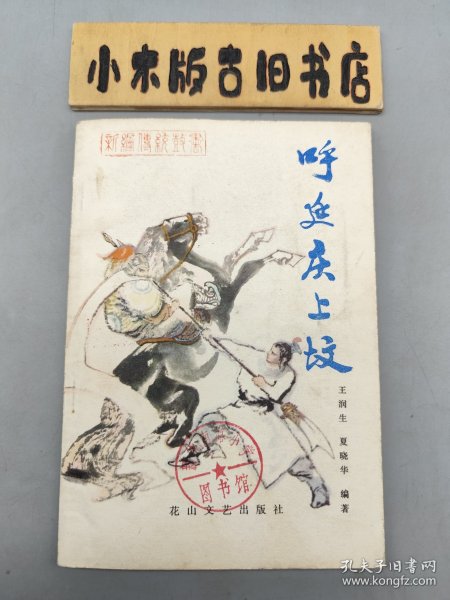 小宋版古旧书店
新编传统鼓书
呼延庆上坟
王润生 夏晓华 编著
图书馆
花山文艺出版社
孔夫子旧书网
www.kongfz.com